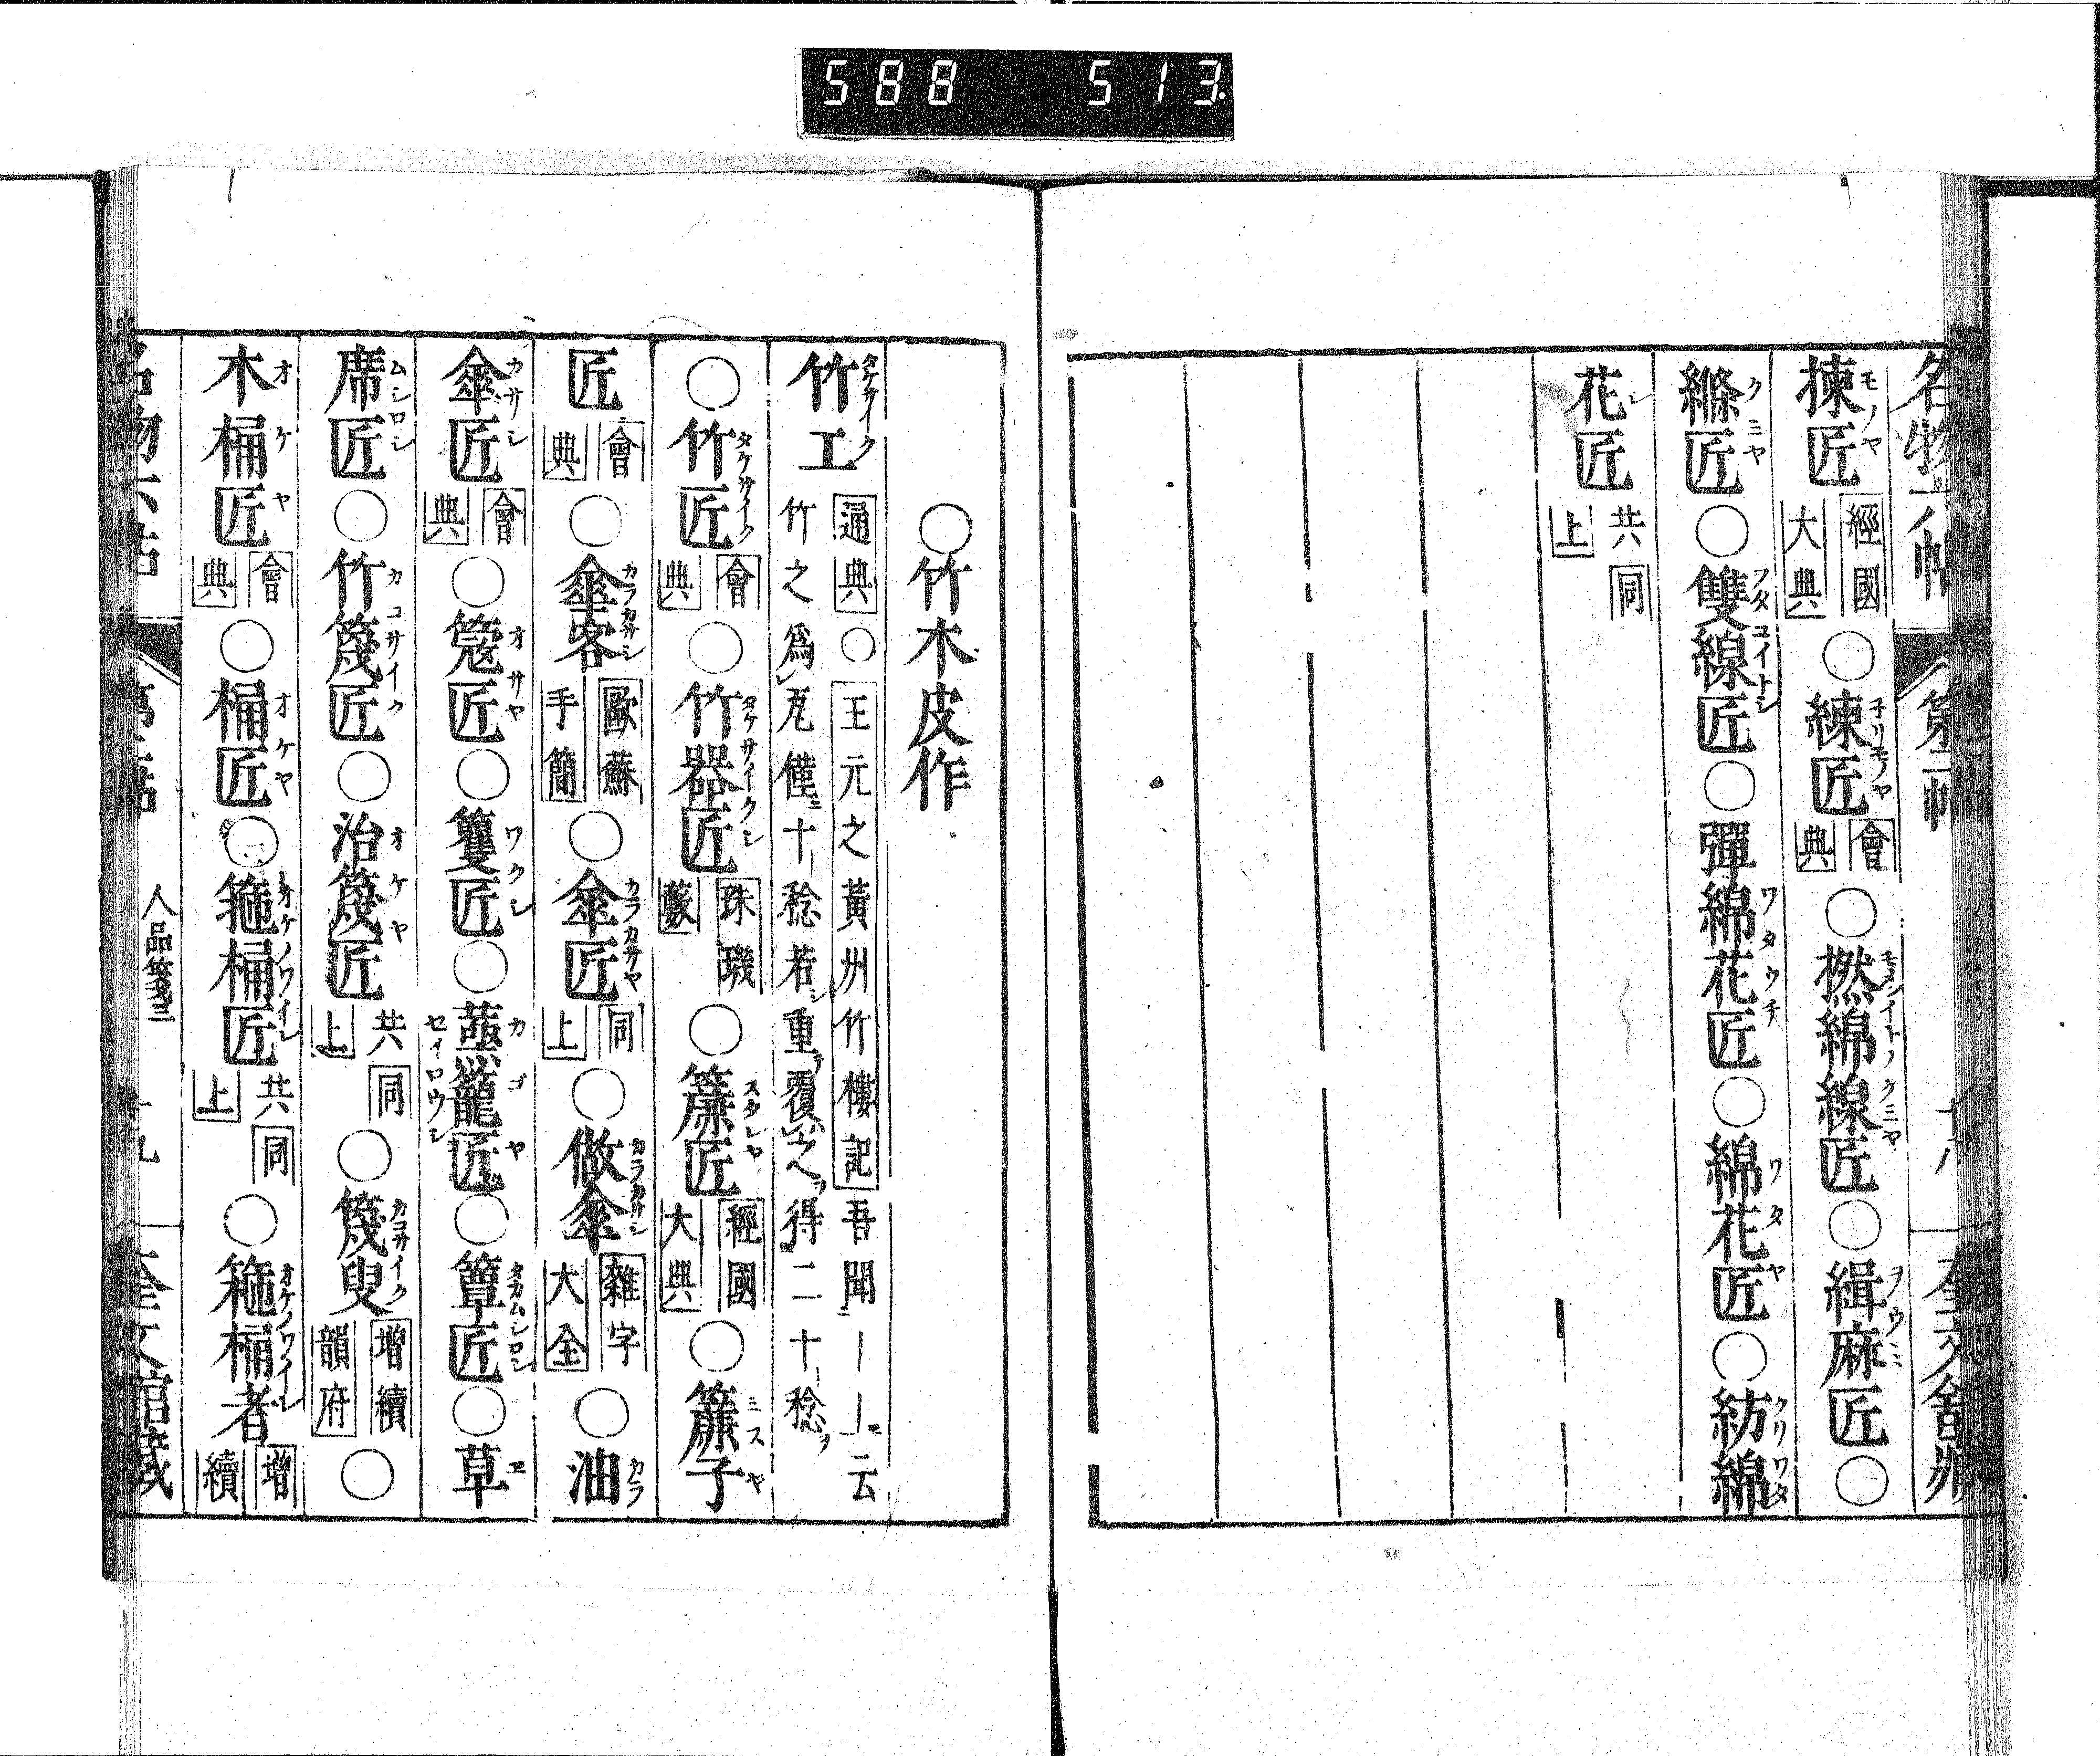 588 513
名物六帖 第二帖 十八 奎文舘藏
揀匠 經國大典 ○練匠 會典 ○撚綿線匠○緝麻匠○
絛匠○雙線匠○彈綿花匠○綿花匠○紡綿
花匠 共同上
○竹木皮作
竹工 通典 ○王元之黃州竹樓記 吾聞竹工云竹之爲瓦僅十稔若重覆之得二十稔
○竹匠 會典 ○竹器匠 珠璣藪 ○簾匠 經國大典 ○簾子
匠 會典 ○傘客 歐蘇手簡 ○傘匠 同上 ○做傘 雜字大全 ○油
傘匠 會典 ○簆匠○籆匠○蒸籠匠○簟匠○草
席匠○竹篾匠○治篾匠 共同上 ○篾叟 增續韻府 ○
木桶匠 會典 ○桶匠○箍桶匠 共同上 ○箍桶者 增續
名物六帖 人品箋三 十九 奎文舘藏